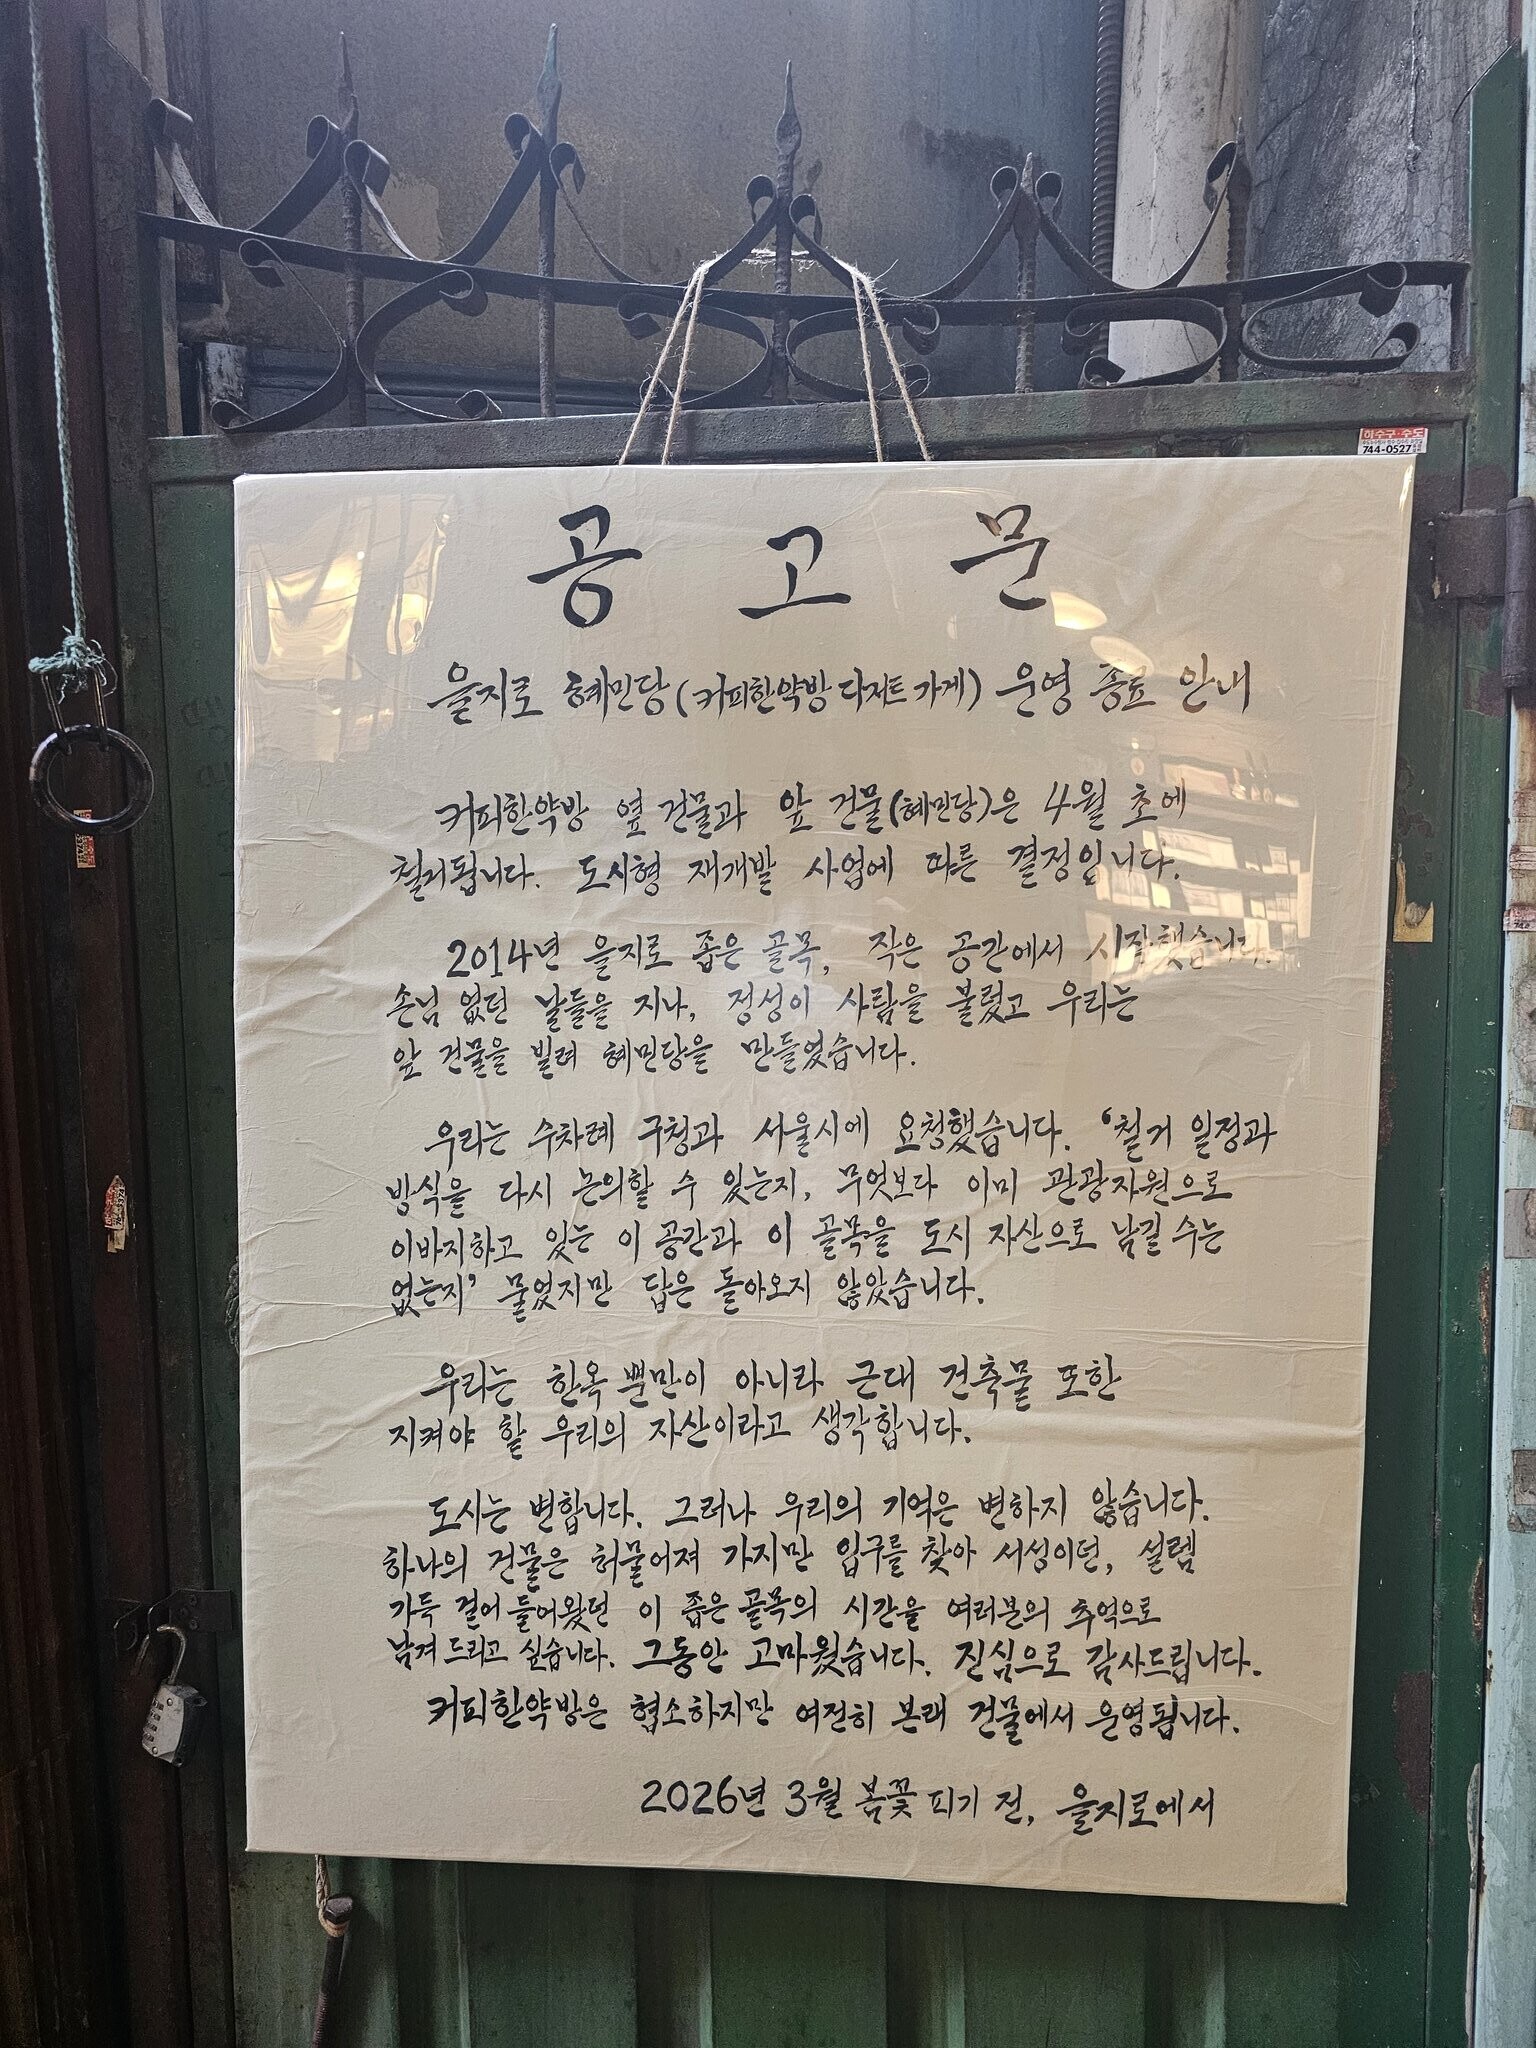 하수구·수도
744-0527
공고문
을지로 혜민당(커피한약방 디저트 가게) 운영 종료 안내
커피한약방 옆 건물과 앞 건물(혜민당)은 4월 초에
철거됩니다. 도시형 재개발 사업에 따른 결정입니다.
2014년 을지로 좁은 골목, 작은 공간에서 시작했습니다.
손님 없던 날들을 지나, 정성이 사람을 불렀고 우리는
앞 건물을 빌려 혜민당을 만들었습니다.
우리는 수차례 구청과 서울시에 요청했습니다. ‘철거 일정과
방식을 다시 논의할 수 있는지, 무엇보다 이미 관광자원으로
이바지하고 있는 이 공간과 이 골목을 도시 자산으로 남길 수는
없는지’ 물었지만 답은 돌아오지 않았습니다.
우리는 한옥 뿐만이 아니라 근대 건축물 또한
지켜야 할 우리의 자산이라고 생각합니다.
도시는 변합니다. 그러나 우리의 기억은 변하지 않습니다.
하나의 건물은 허물어져 가지만 입구를 찾아 서성이던, 설렘
가득 걸어 들어왔던 이 좁은 골목의 시간을 여러분의 추억으로
남겨 드리고 싶습니다. 그동안 고마웠습니다. 진심으로 감사드립니다.
커피한약방은 협소하지만 여전히 본래 건물에서 운영됩니다.
2026년 3월 봄꽃 피기 전, 을지로에서